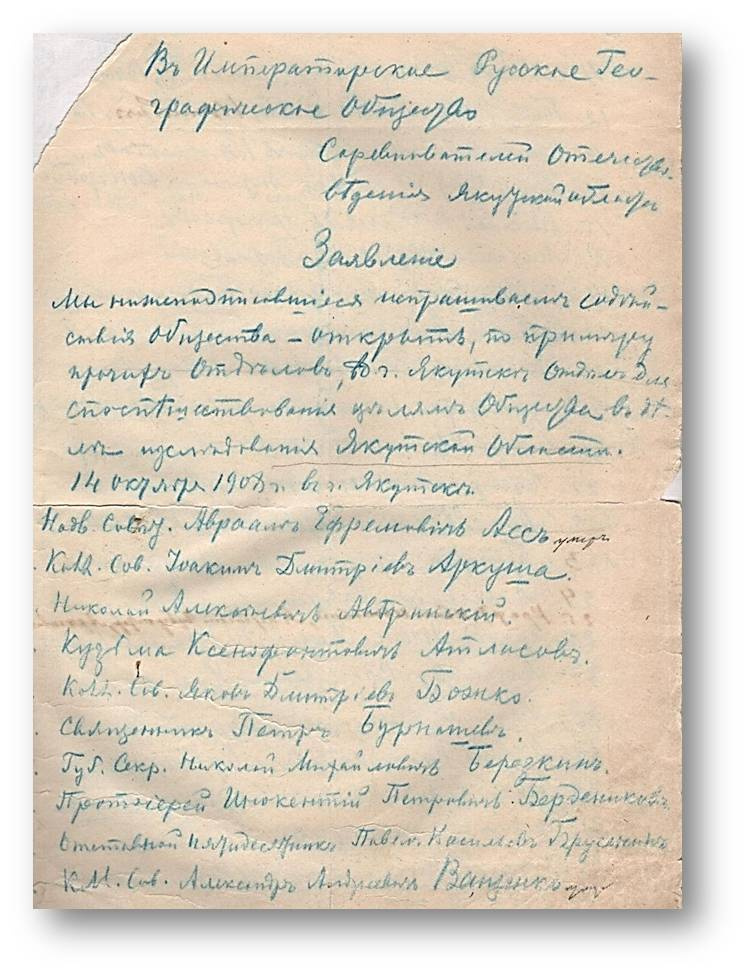 Въ Императорское Русское Гео-
графическое Общество
Соревнователей Отечество-
вѣденія Якутской области
Заявленіе
Мы нижеподписавшіеся испрашиваемъ содѣй-
ствія Общества – открыть, по примѣру
прочихъ Отдѣловъ, въ г. Якутскѣ Отдѣлъ для
споспѣшествованія цѣлямъ Общества въ дѣ-
лѣ изслѣдованія Якутской Области.
14 октября 1908 г. въ г. Якутскѣ.
Надв. Совѣт. Авраамъ Ефремовичъ Ассъ умеръ
Колл. Сов. Іоакимъ Дмитріевъ Аркуша.
Николай Алексѣевичъ Афтринскій.
Кузьма Ксенофонтовичъ Атласовъ.
Колл. Сов. Яковъ Дмитріевъ Божко.
Священникъ Петръ Бурнашевъ.
Губ. Секр. Николай Михайловичъ Березкинъ.
Протоіерей Инокентій Петровичъ Берденниковъ
Отставной пятидесятникъ Павелъ Васильевъ
К. М. Сов. Александръ Андреевичъ умеръ